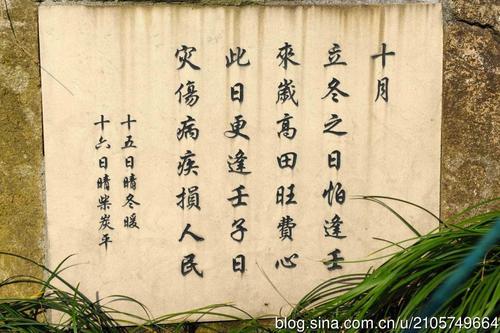 十月
立冬之日怕逢壬
來歲高田旺費心
此日更逢壬子日
灾傷病疾損人民
十五日晴冬暖
十六日晴柴炭平
blog.sina.com.cn/u/2105749664